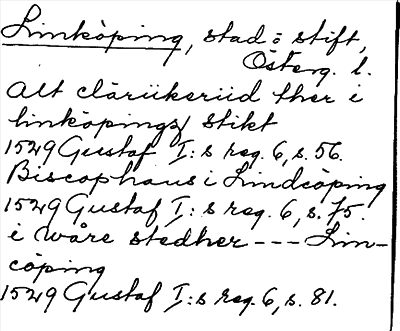 Linköping, stad o stift,
Österg. l.
Alt clärükeriid ther i
linköpings stikt
1529 Gustaf I:s reg. 6, s. 56.
Biscophaus i Lindcöping
1529 Gustaf I:s reg. 6, s. 75.
i wåre stedher --- Lin-
cöping
1529 Gustaf I:s reg. 6, s. 81.